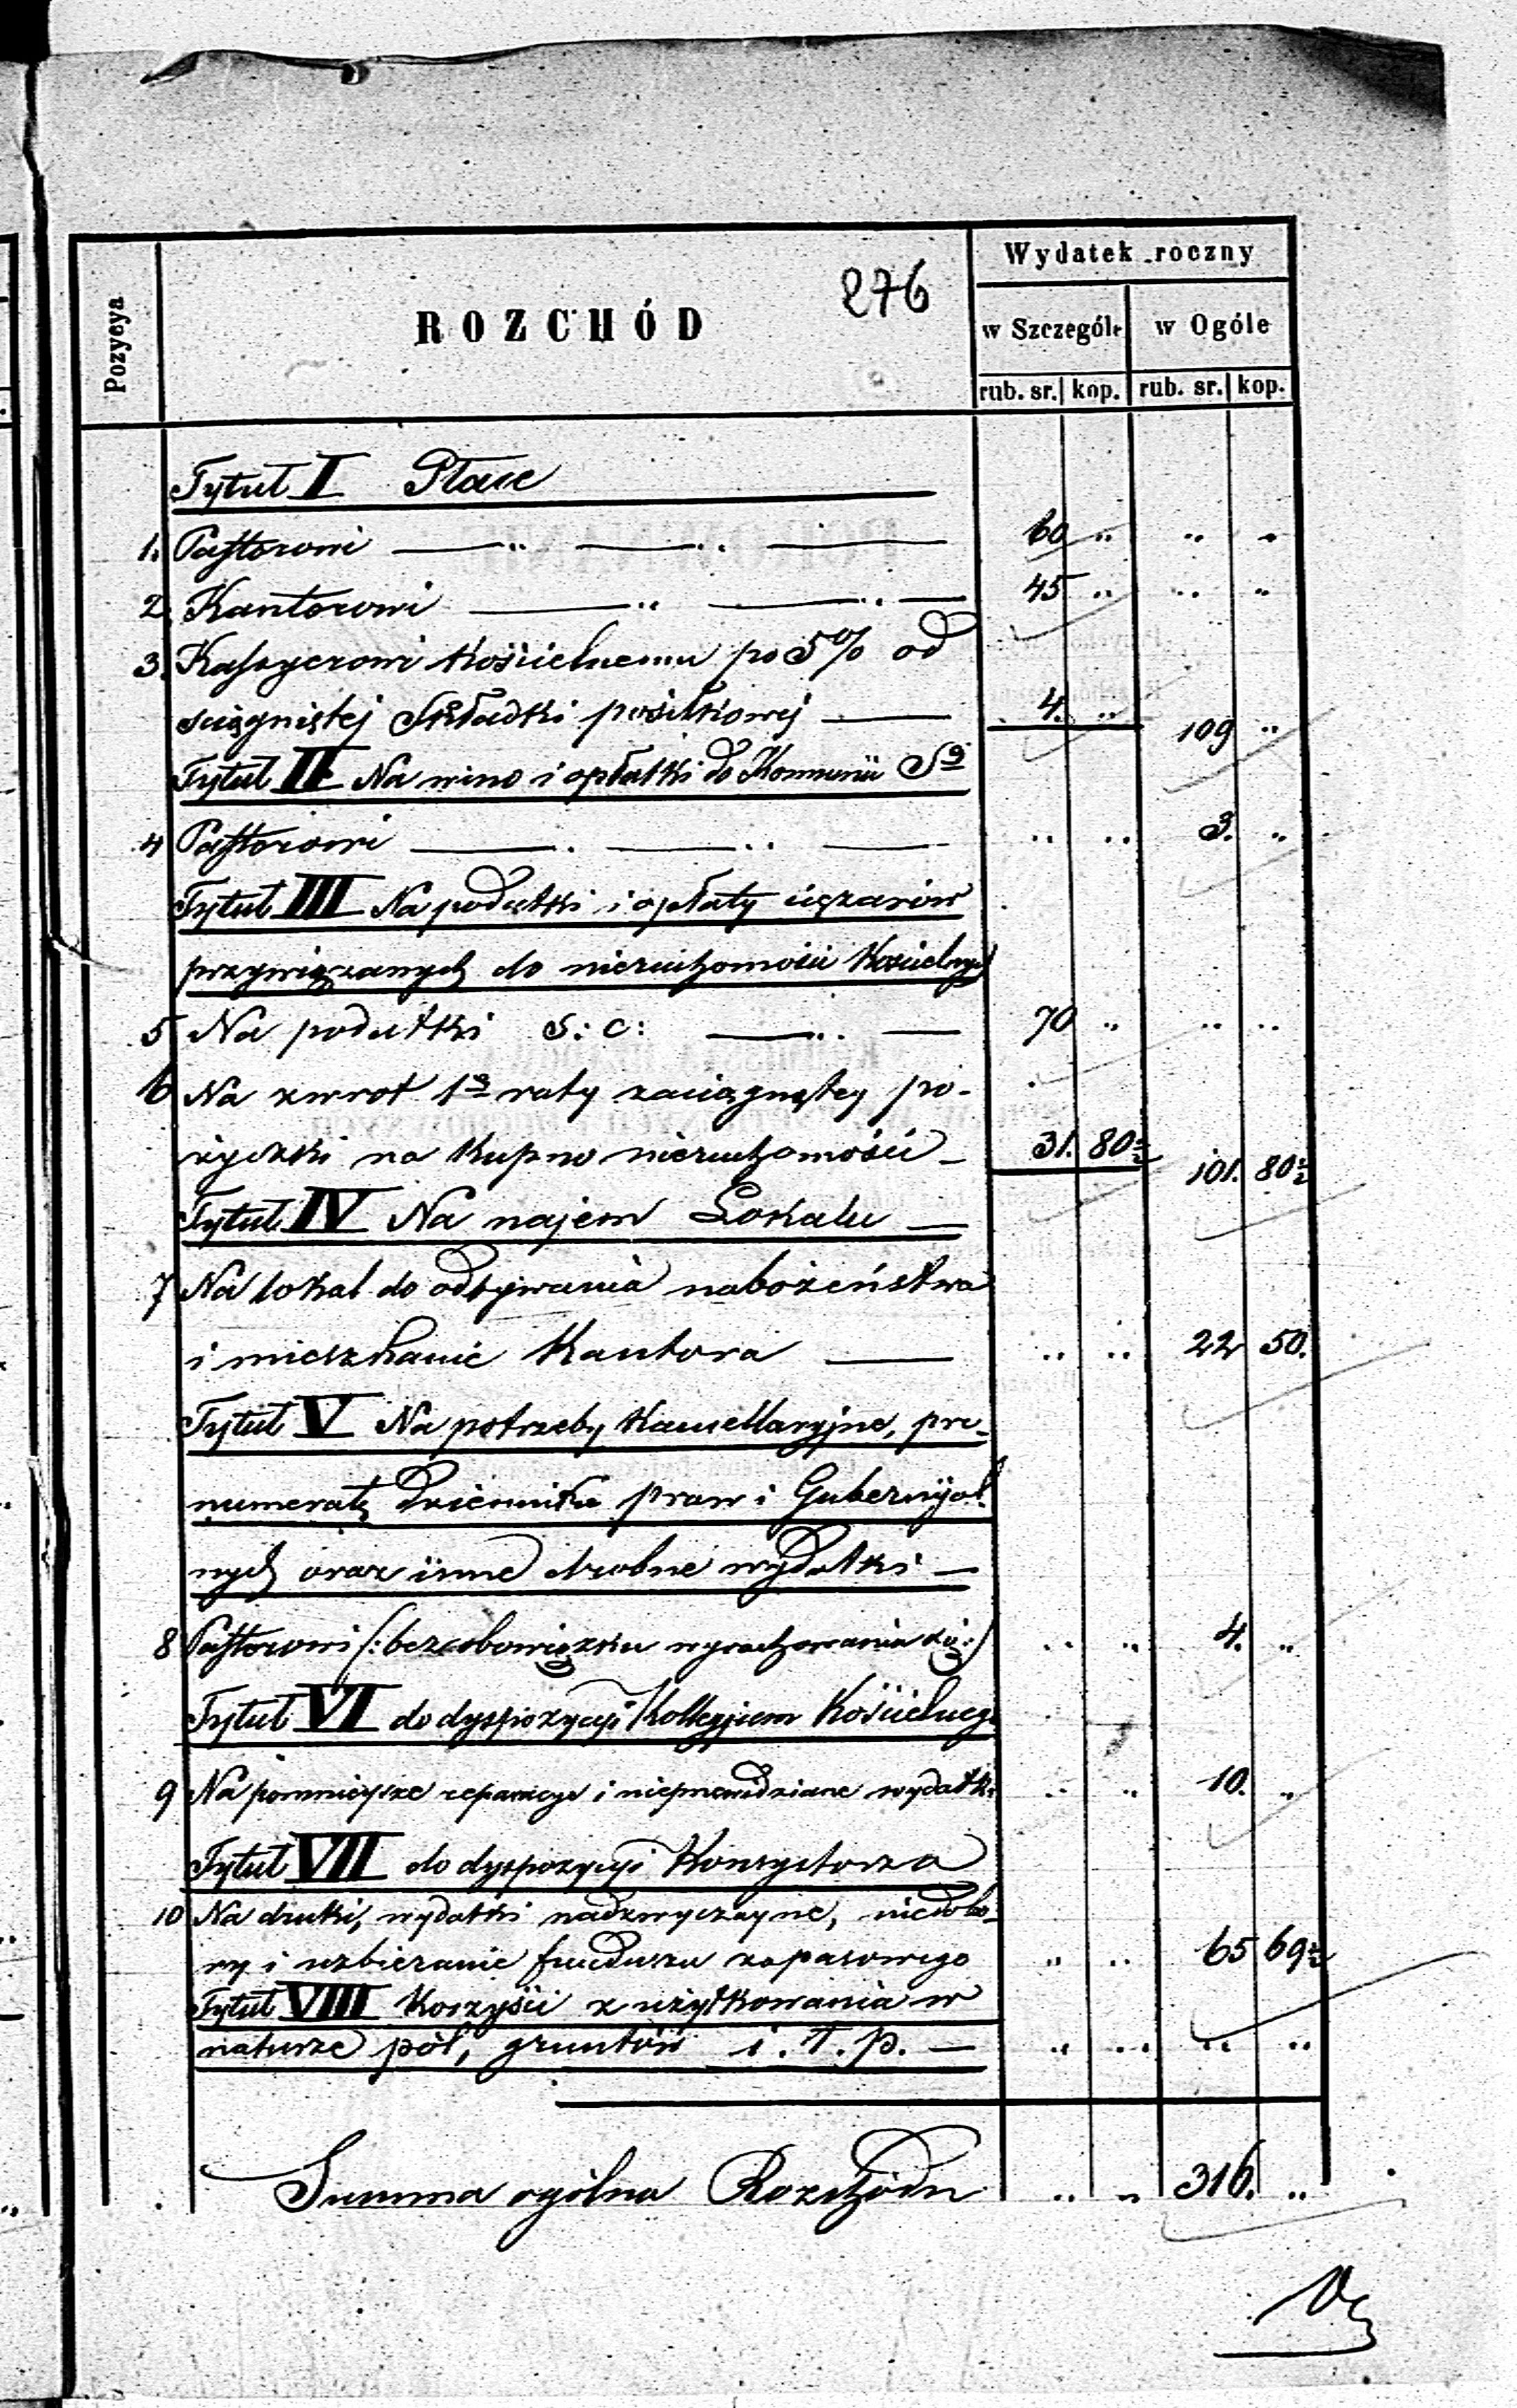 276
Pozycya
ROZCHÓD
Wydatek roczny
w Szczególe w Ogóle
rub. sr. kop. rub. sr. kop.
Tytuł I Płace
1. Pastorowi 60 " " "
2 Kantorowi 45 " " "
3. Kassyerowi Kościelnemu po 5% od
sciągniętej Składki posiłkowej 4. " 109 "
Tytuł II Na wino i opłatki do Kommunii Sej
4 Pastorowi " " 3. "
Tytuł III Na podatki i opłaty ciężarów
przywiązanych do nieruchomości Kościelnych
5 Na podatki S: C: 70 " " "
6 Na zwrot 1ej raty zaciągniętey po-
życzki na Kupno nieruchomości 31. 80½ 101. 80½
Tytuł IV Na najem Lokalu
7 Na lokal do odbywania nabożeństwa
i mieszkanie Kantora " " 22 50.
Tytuł V Na potrzeby Kancellaryjne, pre-
numeratę dzienniku praw i Gubernijal-
nych oraz inne drobne wydatki
8 Pastorowi (: bez obowiązku wyrachowania się :) " " 4. "
Tytuł VI do dyspozycyi Kollegium Kościelnego
9 Na pomniejsze reparacye i nieprzewidziane wydatki " " 10. "
Tytuł VII do dyspozycyi Konsystorza
10 Na druki, wydatki nadzwyczayne, niedobo-
ry i uzbieranie funduszu zapasowego " " 65 69½
Tytuł VIII Korzyści z użytkowania w
naturze pól, gruntów i. t. p. " " " "
Summa ogólna Rozchodu " " 316. "